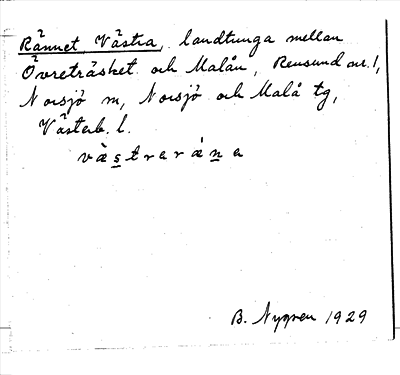 Rännet, Västra, landtunga mellan
Övreträsket och Malån, Rensund avr. 1,
Norsjö sn, Norsjö och Malå tg,
Västerb. l.
västrarána
B. Nygren 1929